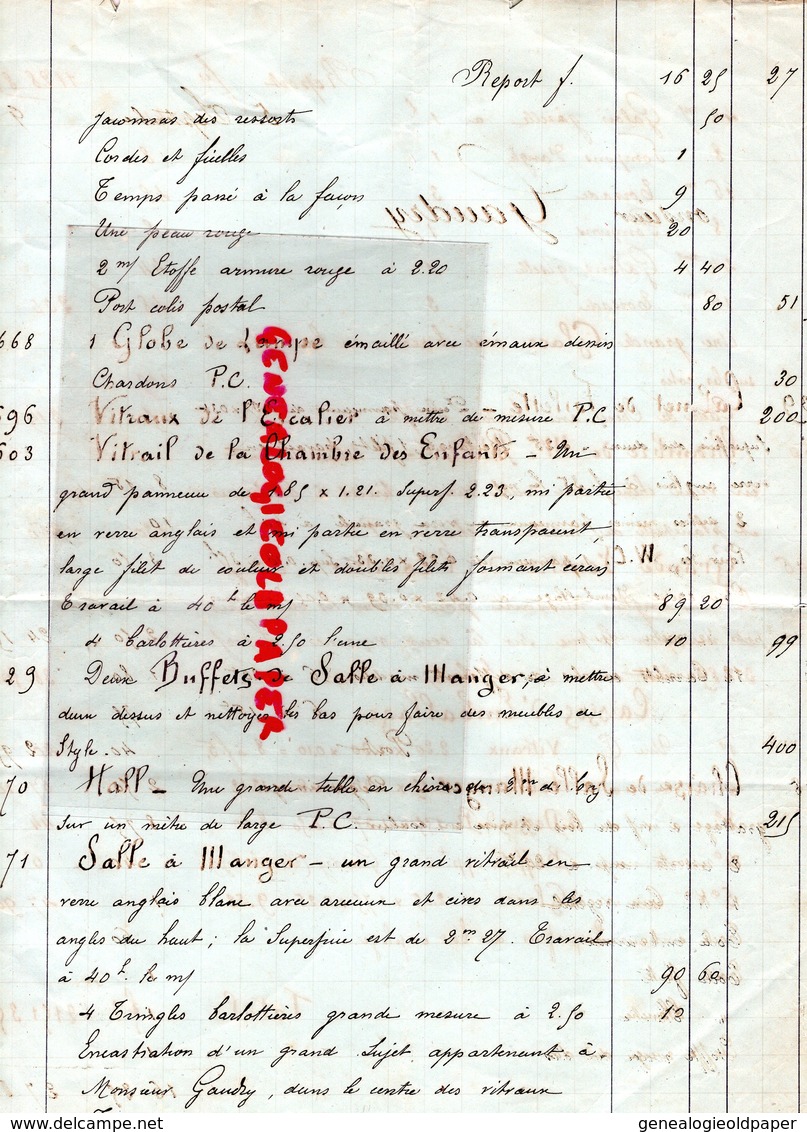 Report f. 16 25 27
jaconnas des ressorts 50
Cordes et ficelles 1
Temps passé à la façon 9
Une peau rouge 20
2m/ Etoffe armure rouge à 2.20 4 40
Port colis postal 80 51
668 1 Globe de Lampe émaillé avec émaux dessin
Chardons P.C. 30
596 Vitraux de l'Escalier à mettre de mesure P.C 200
603 Vitrail de la Chambre des Enfants - Un
grand panneau de 185 x 1.21. Superf. 2.23, mi partie
en verre anglais et mi partie en verre transparent,
large filet de couleur et doubles filets formant
Travail à 40f le m/ 89 20
4 barlottières à 2.50 l'une 10 99
29 Deux Buffets de Salle à Manger, à mettre
deux dessus et nettoyer les bas pour faire des meubles de
Style. 400
70 Hall - Une grande table en de 2m de
sur un mètre de large P.C. 215
71 Salle à Manger - un grand vitrail en
verre anglais blanc avec anneaux et cives dans les
angles du haut; la Superficie est de 2m 27. Travail
à 40f. le m/ 90 60
4 Tringles barlottières grande mesure à 2.50 10
Encastration d'un grand Sujet appartenant à
Monsieur Gaudry, dans le centre des vitraux
GENEALOGIEOLDPAPER
genealogieoldpaper